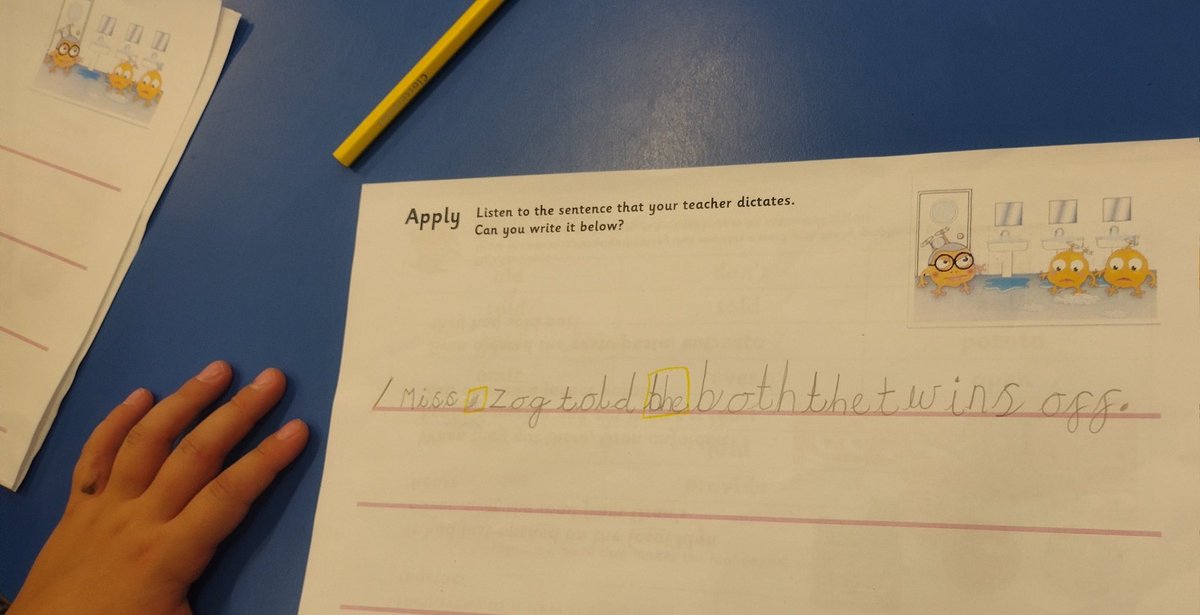 Apply
Listen to the sentence that your teacher dictates.
Can you write it below?
Miss Zog told the both the twins off.